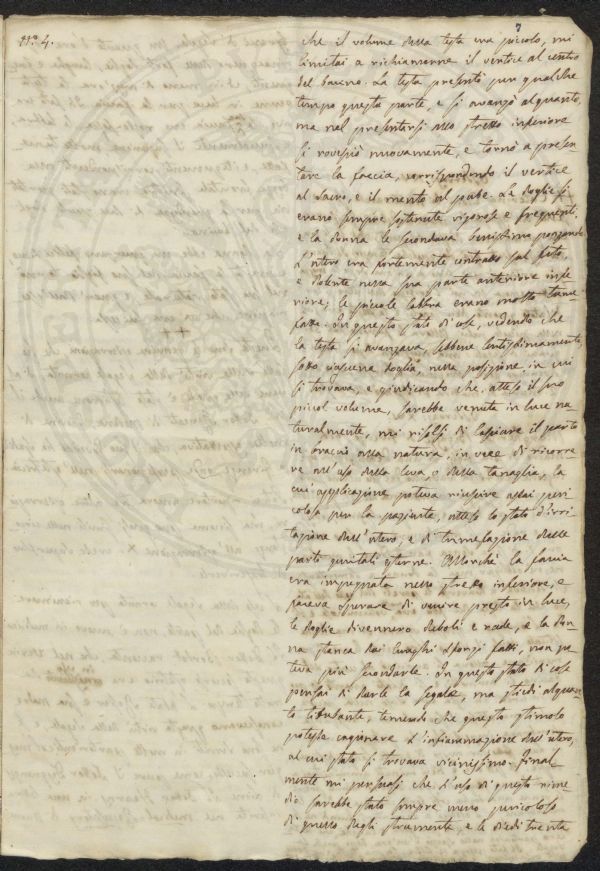 n.° 4.
7
che il volume della testa era piccolo, mi
limitai a richiamarne il vertice al centro
del bacino. La testa presentò per qualche
tempo questa parte, e si avanzò alquanto,
ma nel presentarsi allo stretto inferiore
si rovesciò nuovamente, e tornò a presen
tare la faccia, corrispondendo il vertice
al sacro, e il mento al pube. Le doglie si
erano sempre sostenute vigorose e frequenti,
e la donna le secondava benissimo ponzando
L'utero era fortemente contratto sul feto,
e dolente nella sua parte anteriore infe
riore; le piccole labbra erano molto tume
fatte. In questo stato di cose, vedendo che
la testa si avanzava, sebbene lentissimamente,
sotto ciascuna doglia, nella posizione in cui
si trovava, e giudicando che, atteso il suo
piccol volume, sarebbe venuta in luce na
turalmente, mi risolsi di lasciare il parto
in braccio alla natura, in vece di ricorre
re all'uso della leva, o della tanaglia, la
cui applicazione poteva riuscire assai peri
colosa per la paziente, atteso lo stato d'irri
tazione dell'utero, e di tumefazione delle
parti genitali esterne. Allorchè la faccia
era impegnata nello stretto inferiore, e
faceva sperare di venire presto in luce,
le doglie divennero deboli e rade, e la don
na stanca dai lunghi sforzi fatti, non po
teva più secondarle. In questo stato di cose
pensai di darle la segale, ma stiedi alquan
to titubante, temendo che questo stimolo
potesse cagionare l'infiammazione dell'utero,
al cui stato si trovava vicinissimo. Final
mente mi persuasi che l'uso di questo rime
dio sarebbe stato sempre meno pericoloso
di quello degli strumenti, e le diedi trenta